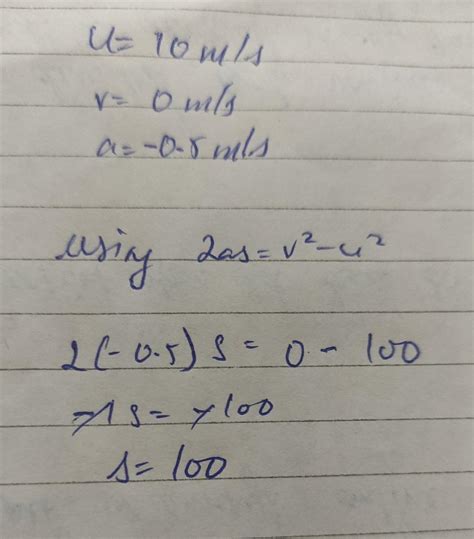 u= 10 m/s
v= 0 m/s
a= -0.5 m/s
using 2as = v² - u²
2(-0.5) s = 0 - 100
-1 s = -100
s = 100